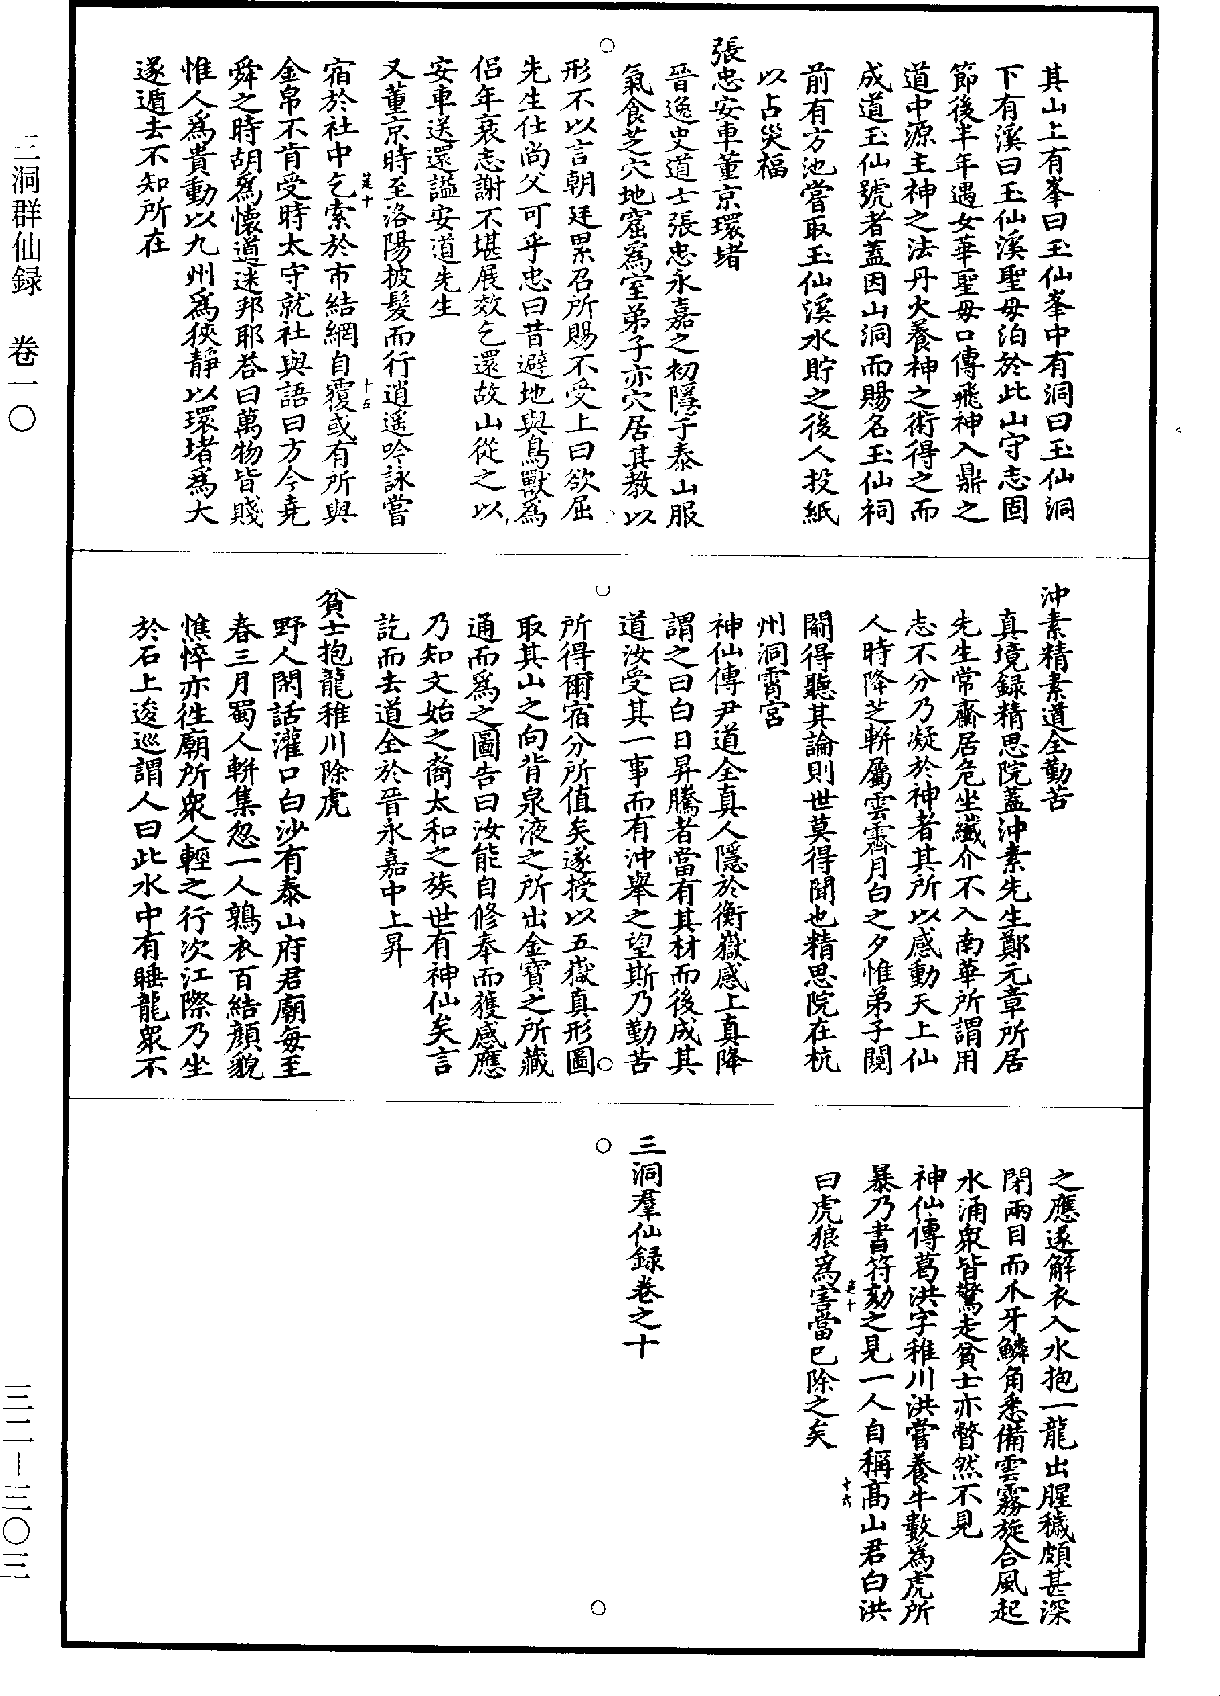 三洞群仙録 卷一〇
三二－三〇三
其山上有峯曰玉仙峯中有洞曰玉仙洞
下有溪曰玉仙溪聖母泊於此山守志固
節後半年遇女華聖母口傳飛神入鼎之
道中源主神之法丹火養神之術得之而
成道玉仙號者蓋因山洞而賜名玉仙祠
前有方池嘗取玉仙溪水貯之後人投紙
以占災福
張忠安車董京環堵
晉逸史道士張忠永嘉之初隱于泰山服
氣食芝穴地窟為室弟子亦穴居其教以
形不以言朝廷累召所賜不受上曰欲屈
先生仕尚父可乎忠曰昔避地與鳥獸為
侶年衰志謝不堪展效乞還故山從之以
安車送還謚安道先生
又董京時至洛陽披髮而行逍遥吟詠嘗
宿於社中乞索於市結網自覆或有所與
金帛不肯受時太守就社與語曰方今堯
舜之時胡為懷道迷邦耶荅曰萬物皆賤
惟人為貴動以九州為狹靜以環堵為大
遂遁去不知所在
沖素精素道全勤苦
真境録精思院蓋沖素先生鄭元章所居
先生常齋居危坐纖介不入南華所謂用
志不分乃凝於神者其所以感動天上仙
人時降芝輧屬雲霽月白之夕惟弟子闋
關得聽其論則世莫得聞也精思院在杭
州洞霄宮
神仙傳尹道全真人隱於衡嶽感上真降
謂之曰白日昇騰者當有其材而後成其
道汝受其一事而有沖舉之望斯乃勤苦
所得爾宿分所值矣遂授以五嶽真形圖
取其山之向背泉液之所出金寶之所藏
通而為之圖告曰汝能自修奉而獲感應
乃知文始之裔太和之族世有神仙矣言
訖而去道全於晉永嘉中上昇
貧士抱龍稚川除虎
野人閑話灌口白沙有泰山府君廟每至
春三月蜀人輧集忽一人鶉衣百結顔貌
憔悴亦徃廟所衆人輕之行次江際乃坐
於石上逡巡謂人曰此水中有睡龍衆不
之應遂解衣入水抱一龍出腥穢頗甚深
閉兩目而爪牙鱗角悉備雲霧旋合風起
水涌衆皆驚走貧士亦瞥然不見
神仙傳葛洪字稚川洪嘗養牛數為虎所
暴乃書符劾之見一人自稱高山君白洪
曰虎狼為害當已除之矣
三洞羣仙録卷之十